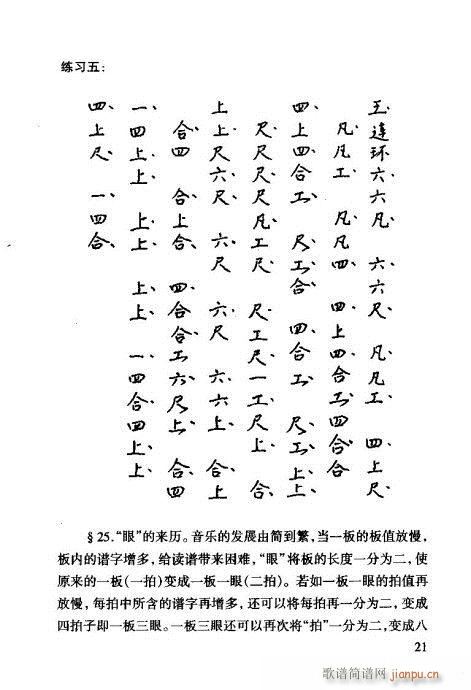 练习五：
玉連环六、六凡、六、六尺、凡、凡工、四、上尺、
凡、凡工、凡、凡四、四、上四、合工、四合合
四、上四、合工、尺、工、合四、合工、尺、工、上、
尺、尺尺、尺、凡、工、尺、尺、工、尺、一工、尺上、合、
上上、尺六、尺、六、尺六、尺六、六上、合、上、
合、四合、上合、四合、合、工六、尺上、合、四
一、四上、上、上、上、上、上、一、四合、四上、上、
四、上尺、一、四合、
§25.“眼”的来历。音乐的发展由简到繁，当一板的板值放慢，
板内的谱字增多，给读谱带来困难，“眼”将板的长度一分为二，使
原来的一板(一拍)变成一板一眼(二拍)。若如一板一眼的拍值再
放慢，每拍中所含的谱字再增多，还可以将每拍再一分为二，变成
四拍子即一板三眼。一板三眼还可以再次将“拍”一分为二，变成八
21
歌谱简谱网
jianpu.cn